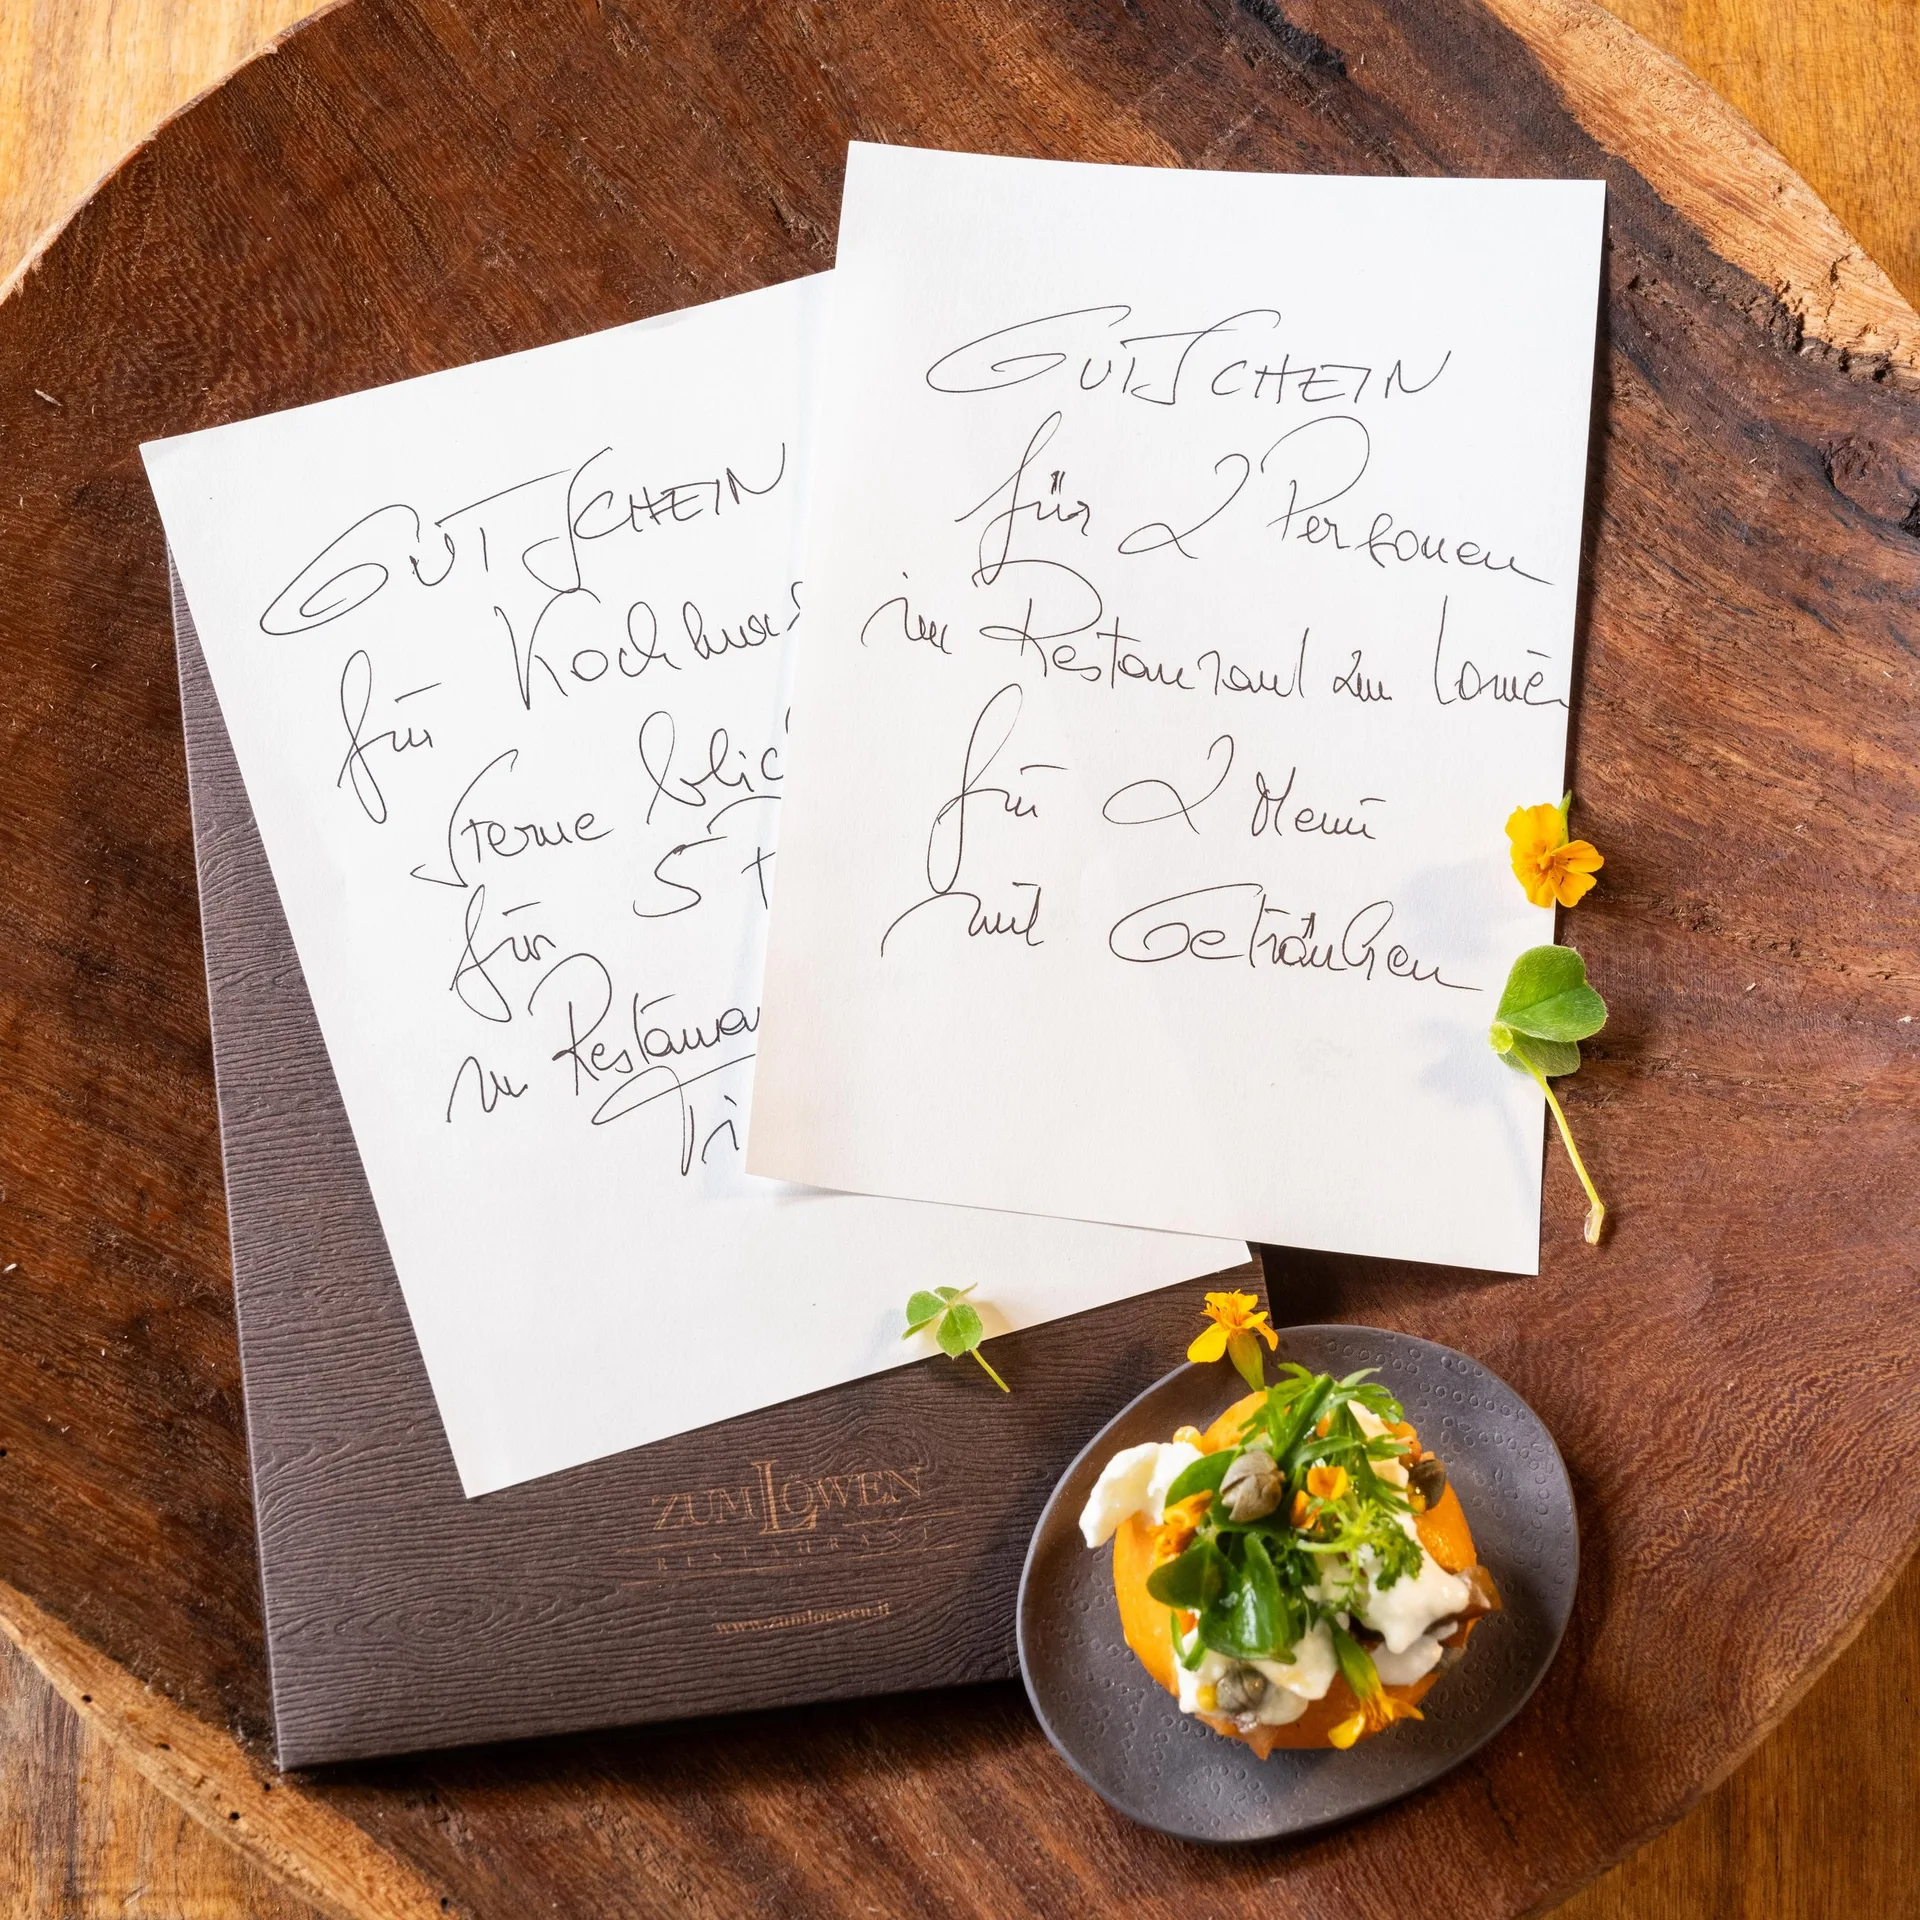 GUTSCHEIN
für Kochkurs
Sterneblic
für 5 P
im Restauran
Ti
GUTSCHEIN
für 2 Personen
im Restaurant zum Löwen
für 2 Menü
mit Getränken
ZUM LÖWEN
RESTAURANT
www.zumloewen.it